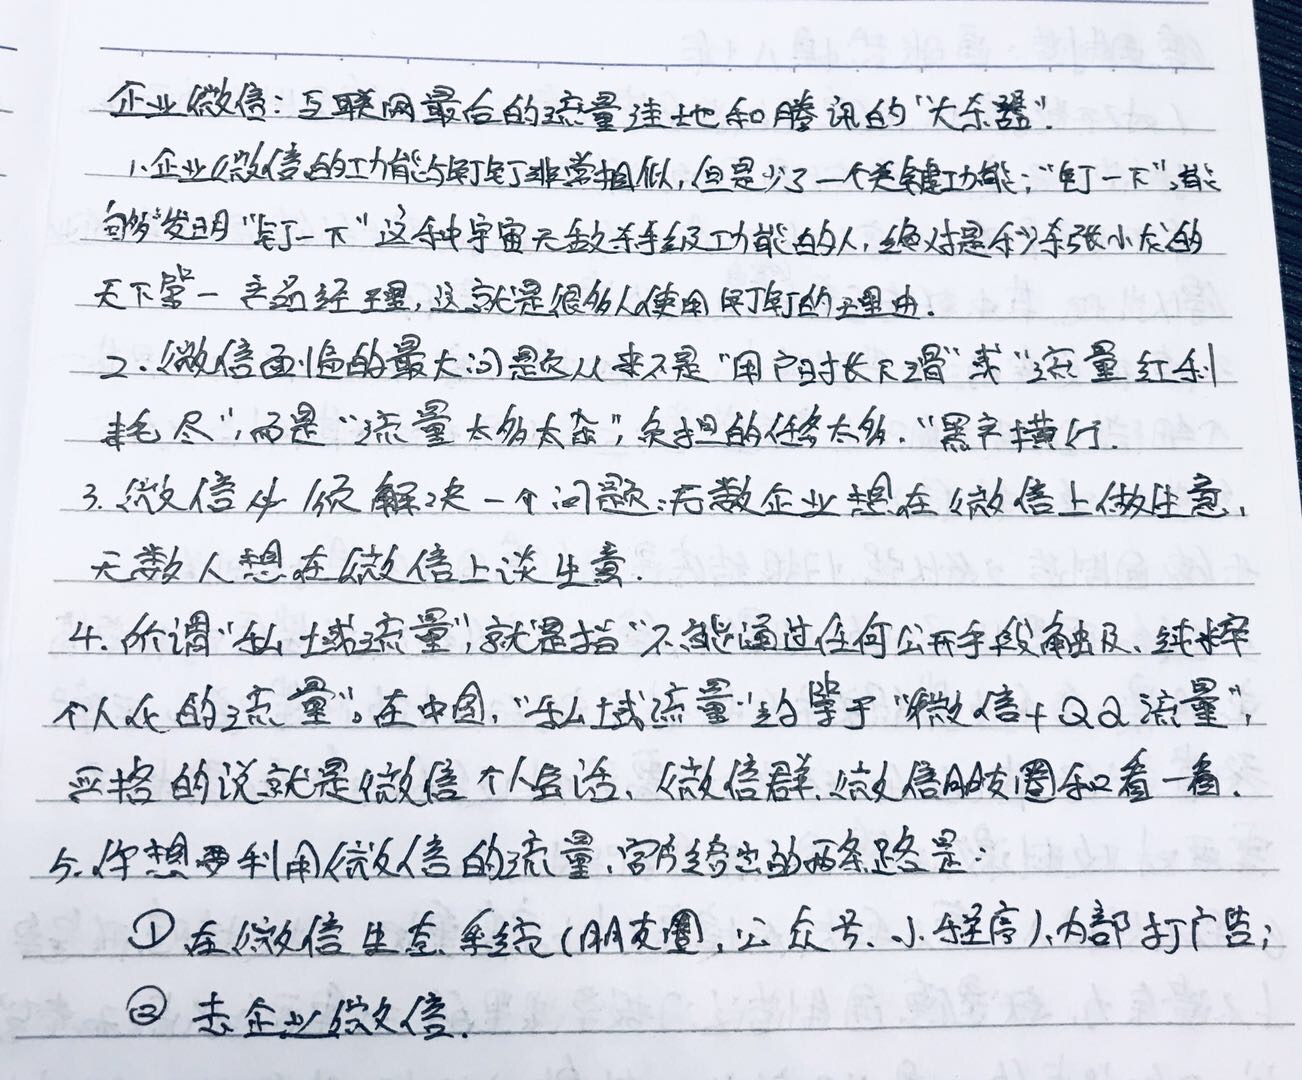 企业微信：互联网最后的流量洼地和腾讯的“大杀器”.
1.企业微信的功能与钉钉非常相似，但是少了一个关键功能；“钉一下”，能
够发明“钉一下”这种宇宙无敌杀手级功能的人，绝对是秒杀张小龙的
天下第一产品经理，这就是很多人使用钉钉的理由.
2.微信面临的最大问题从来不是“用户时长下滑”或“流量红利
耗尽”，而是“流量太多太杂”，负担的任务太多.“黑产横行.
3.微信必须解决一个问题：无数企业想在微信上做生意，
无数人想在微信上谈生意.
4.所谓“私域流量”，就是指“不能通过任何公开手段触及、纯粹
个人化的流量”。在中国，“私域流量”约等于“微信+QQ流量”，
严格的说就是微信个人会话、微信群、微信朋友圈和看一看.
5.你想要利用微信的流量，官方给出的两条路是：
①在微信生态系统（朋友圈，公众号、小程序）、内部打广告；
②去企业微信.